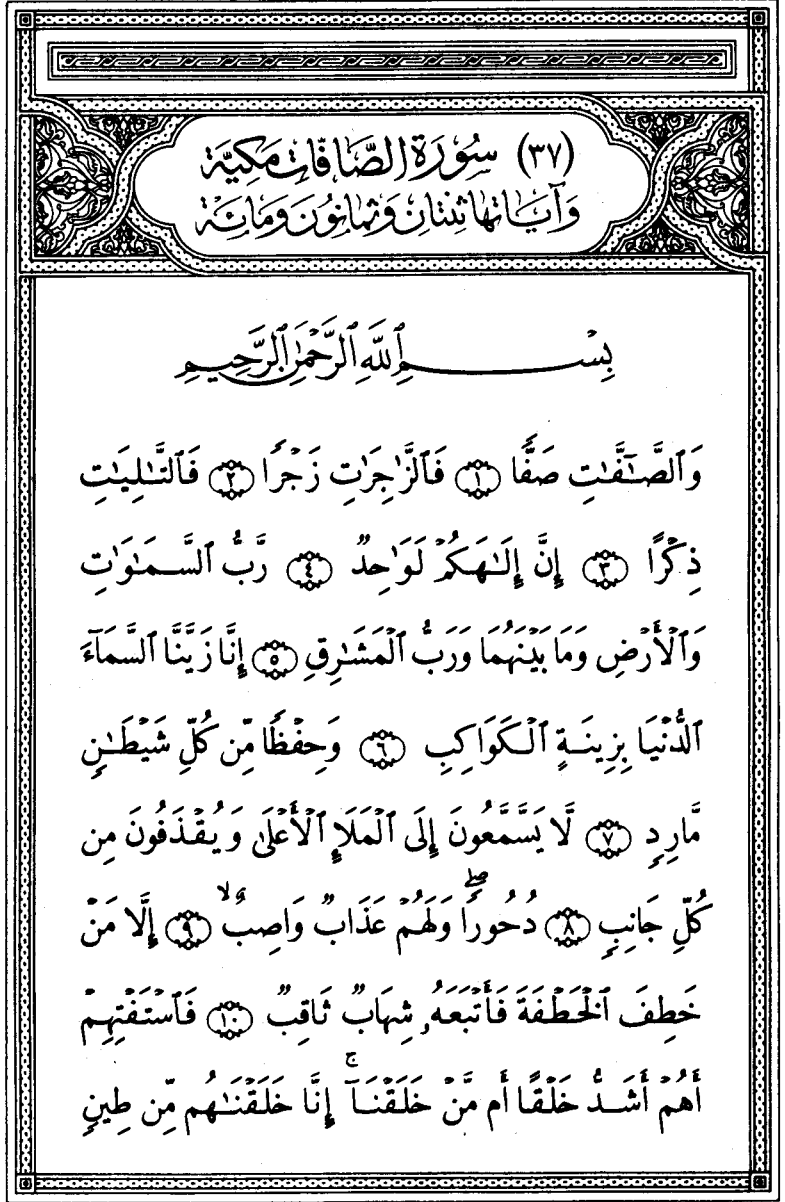 (٣٧) سُورَةُ الصَّافَّاتِ مَكِيَّة
وَآيَاتُهَا ثِنْتَانِ وَثَمَانُونَ وَمَائَة
بِسْمِ ٱللَّهِ ٱلرَّحْمَٰنِ ٱلرَّحِيمِ
وَٱلصَّٰٓفَّٰتِ صَفًّا ١ فَٱلزَّٰجِرَٰتِ زَجْرًا ٢ فَٱلتَّٰلِيَٰتِ
ذِكْرًا ٣ إِنَّ إِلَٰهَكُمْ لَوَٰحِدٌ ٤ رَّبُّ ٱلسَّمَٰوَٰتِ
وَٱلْأَرْضِ وَمَا بَيْنَهُمَا وَرَبُّ ٱلْمَشَٰرِقِ ٥ إِنَّا زَيَّنَّا ٱلسَّمَآءَ
ٱلدُّنْيَا بِزِينَةٍ ٱلْكَوَاكِبِ ٦ وَحِفْظًا مِّن كُلِّ شَيْطَٰنٍ
مَّارِدٍ ٧ لَّا يَسَّمَّعُونَ إِلَى ٱلْمَلَإِ ٱلْأَعْلَىٰ وَيُقْذَفُونَ مِن
كُلِّ جَانِبٍ ٨ دُحُورًا ۖ وَلَهُمْ عَذَابٌ وَاصِبٌ ٩ إِلَّا مَنْ
خَطِفَ ٱلْخَطْفَةَ فَأَتْبَعَهُۥ شِهَابٌ ثَاقِبٌ ١٠ فَٱسْتَفْتِهِمْ
أَهُمْ أَشَدُّ خَلْقًا أَم مَّنْ خَلَقْنَآ ۚ إِنَّا خَلَقْنَٰهُم مِّن طِينٍ